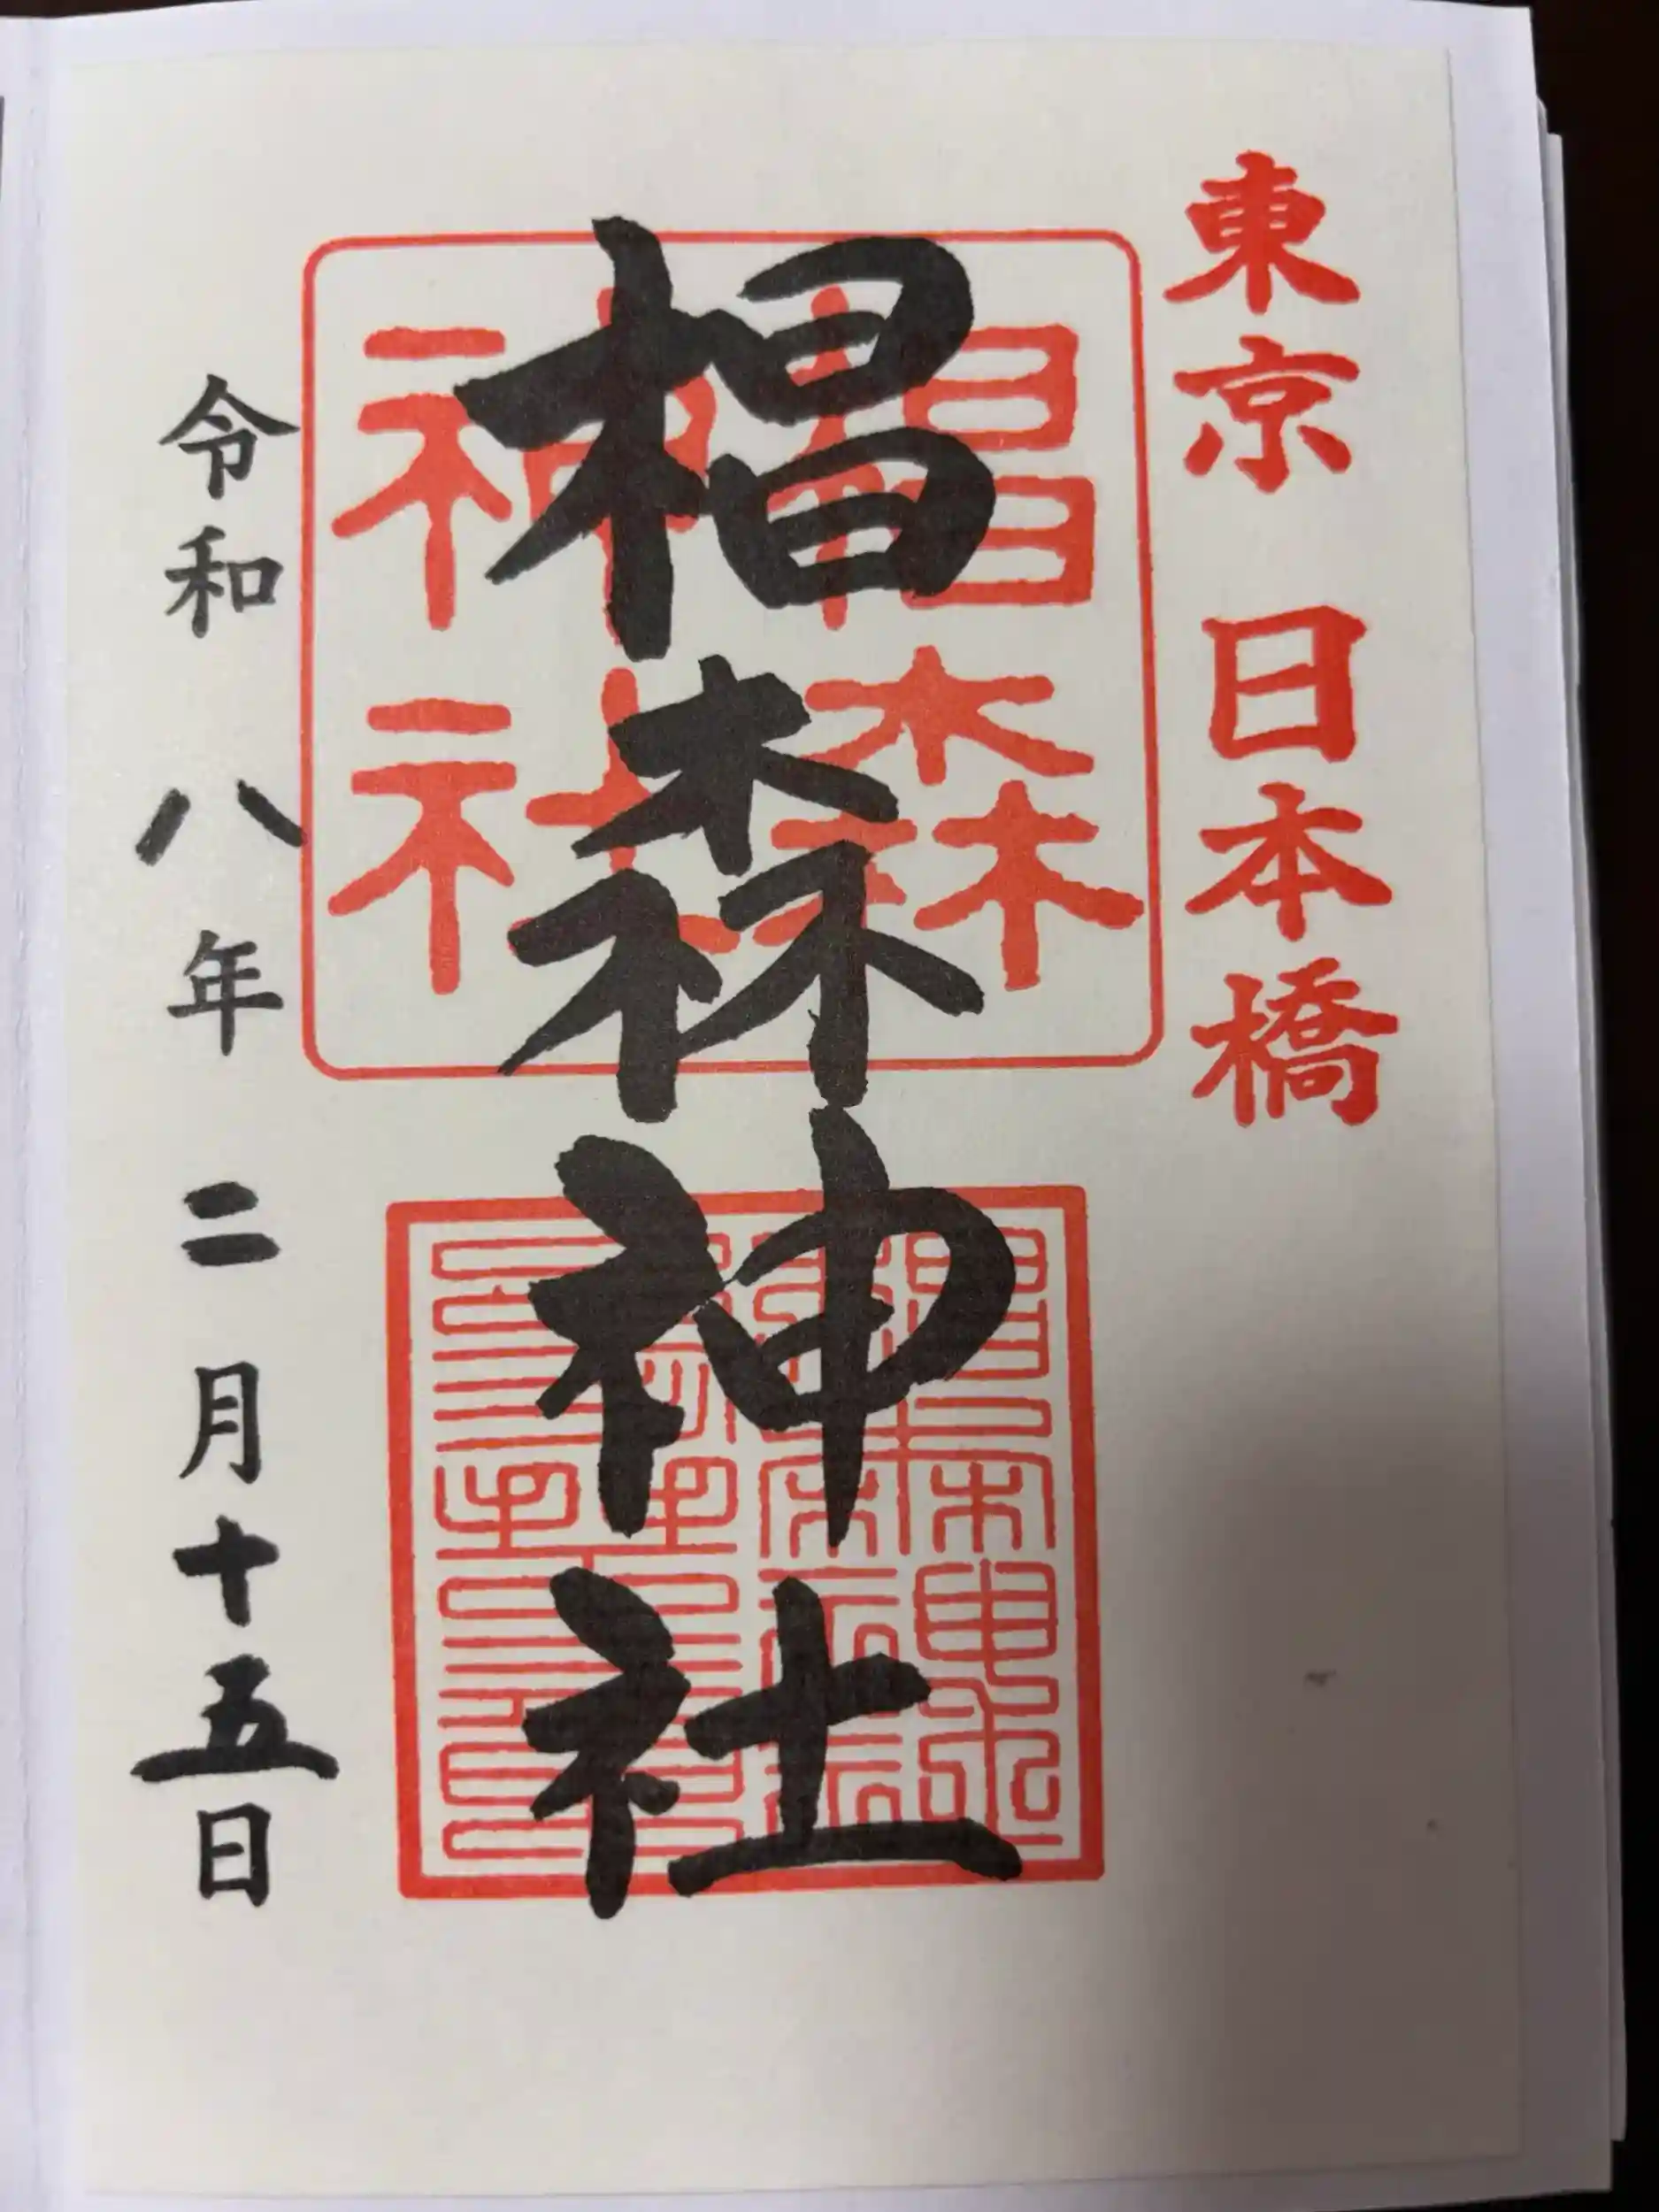 東京 日本橋
椙森神社
椙森
神社
令和八年二月十五日